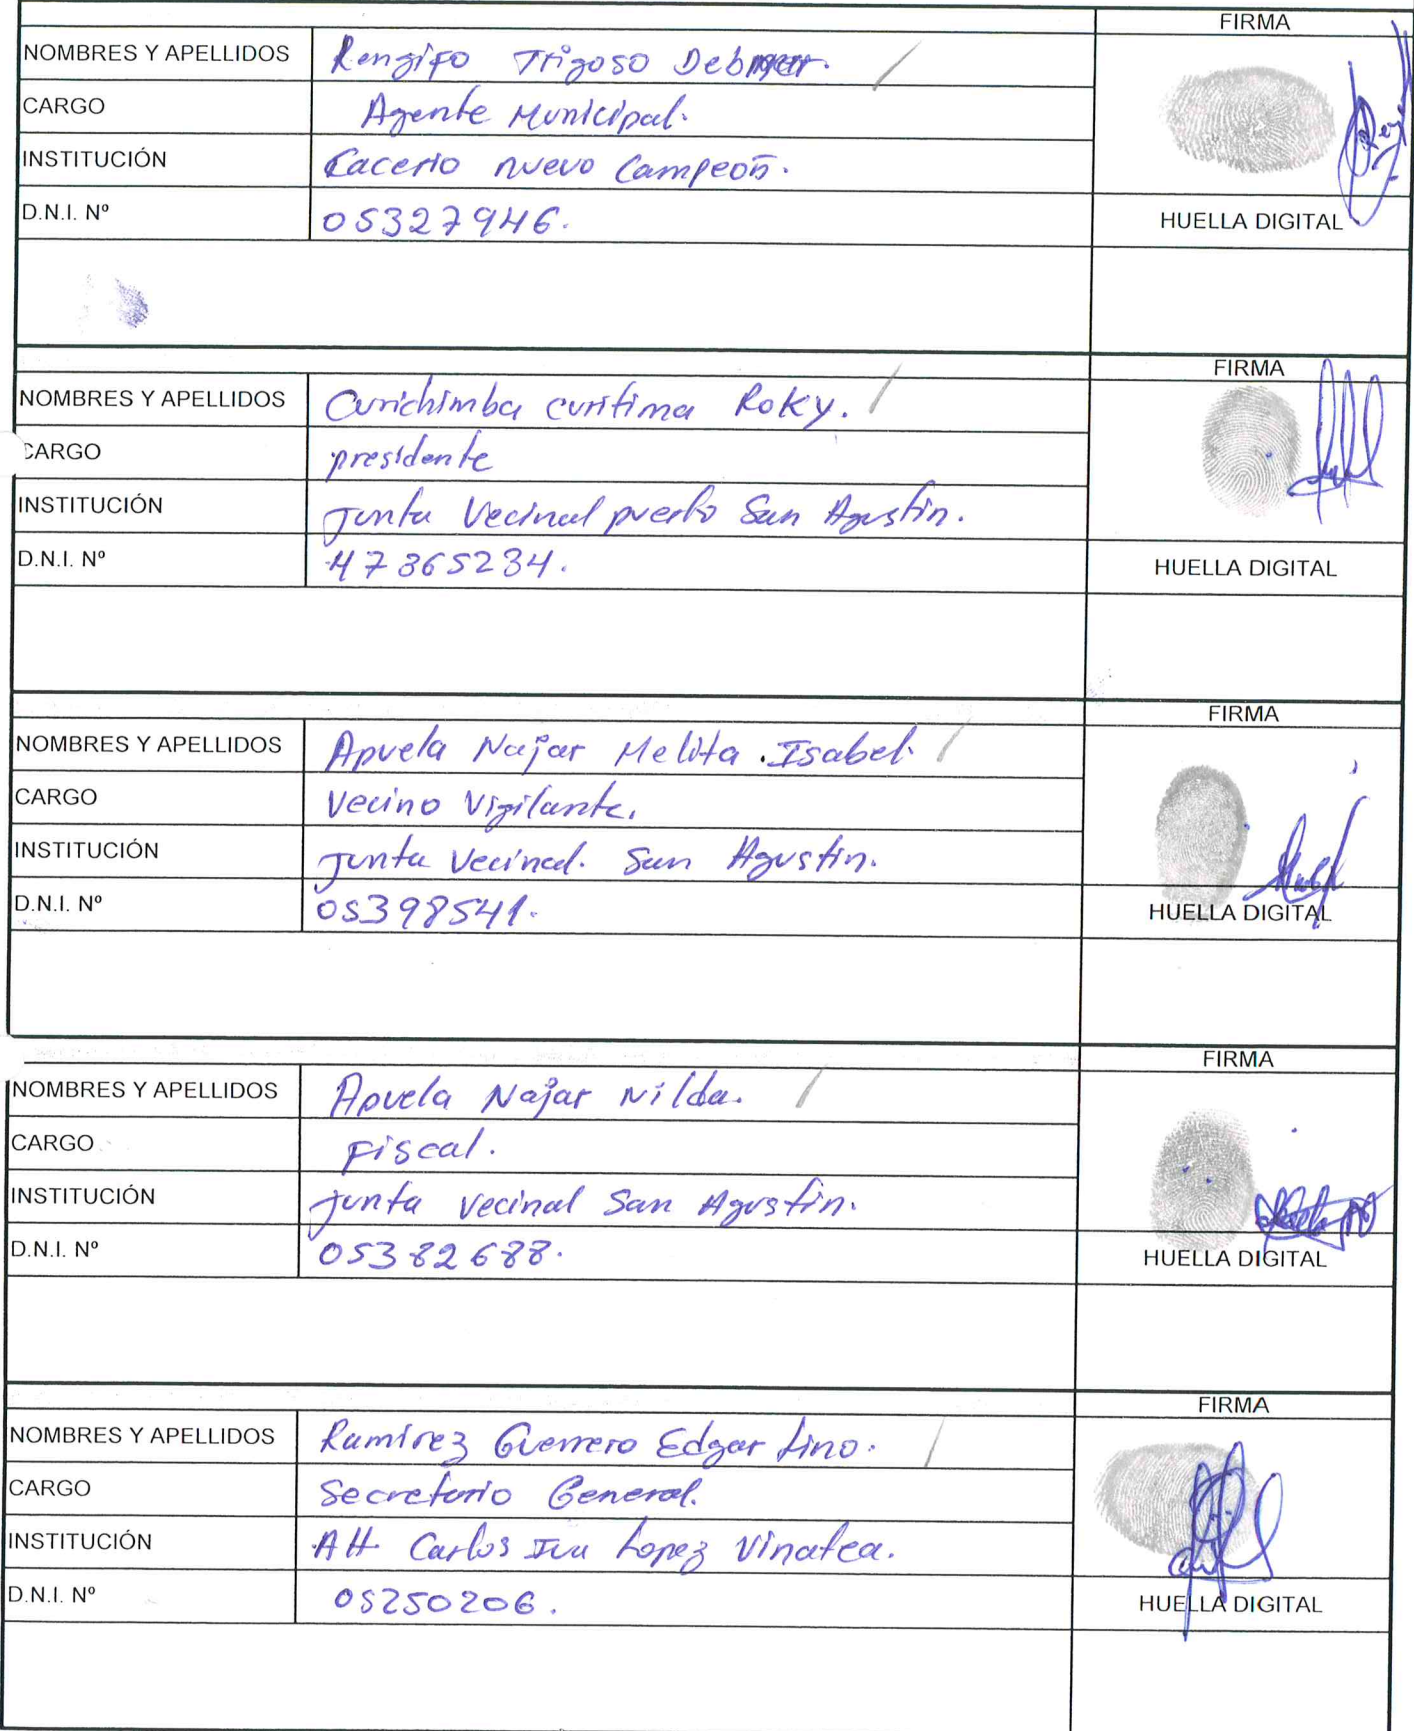 FIRMA
NOMBRES Y APELLIDOS Rengifo Trigoso
CARGO Agente Municipal.
INSTITUCIÓN Cacerio nuevo Campeon.
D.N.I. Nº 05327946.
HUELLA DIGITAL
FIRMA
NOMBRES Y APELLIDOS Curichimba curitima Roky.
CARGO presidente
INSTITUCIÓN Junta Vecinal puerto San Agustin.
D.N.I. Nº 47365234.
HUELLA DIGITAL
FIRMA
NOMBRES Y APELLIDOS Apuela Najar Melita Isabel.
CARGO Vecino Vigilante.
INSTITUCIÓN Junta Vecinal. San Agustin.
D.N.I. Nº 05398541.
HUELLA DIGITAL
FIRMA
NOMBRES Y APELLIDOS Apuela Najar Nilda.
CARGO Fiscal.
INSTITUCIÓN Junta Vecinal San Agustin.
D.N.I. Nº 05382688.
HUELLA DIGITAL
FIRMA
NOMBRES Y APELLIDOS Ramirez Guerrero Edgar Lino.
CARGO Secretario General.
INSTITUCIÓN AH. Carlos Ivan Lopez Vinatea.
D.N.I. Nº 05250206.
HUELLA DIGITAL